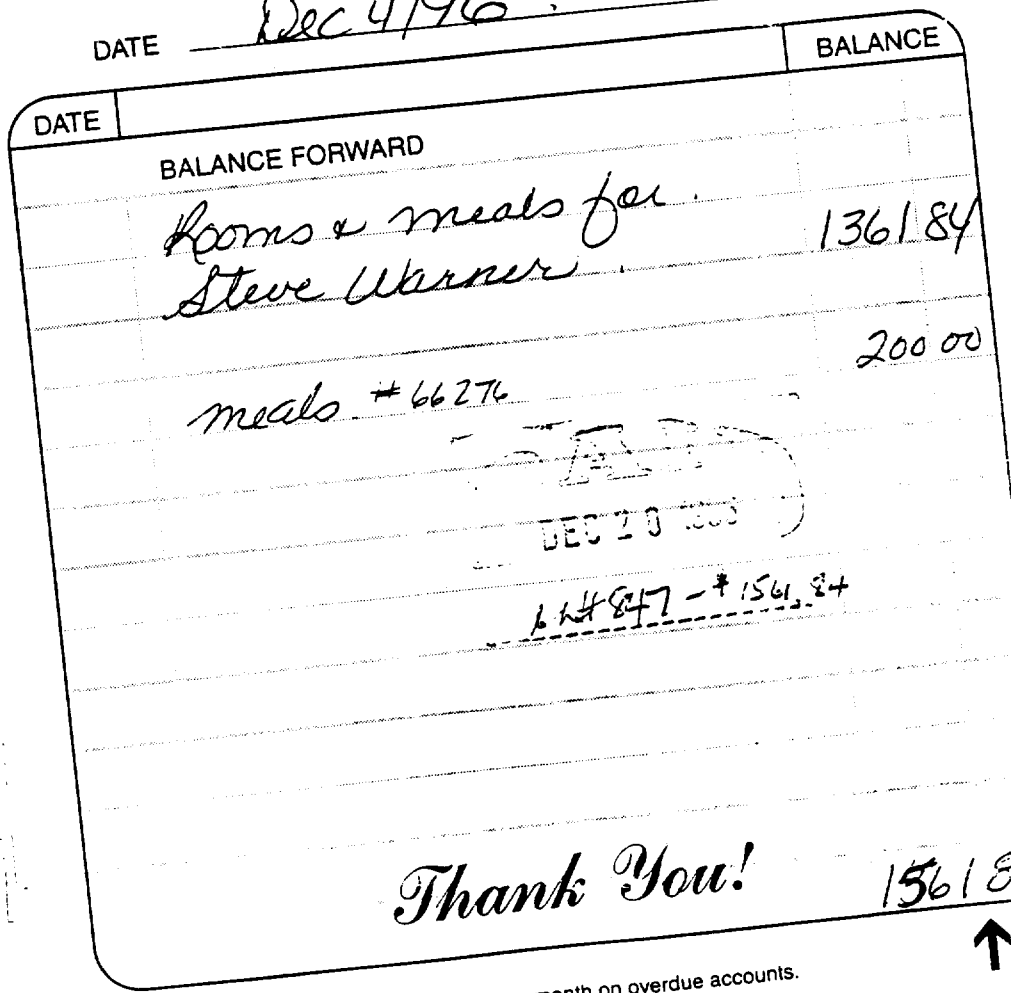 DATE Dec 4/96
DATE BALANCE
BALANCE FORWARD
Rooms & meals for
Steve Warner 1361 84
meals #66276 200 00
DEC 20
#847 - $1561.84
Thank You! 1561 8
month on overdue accounts.